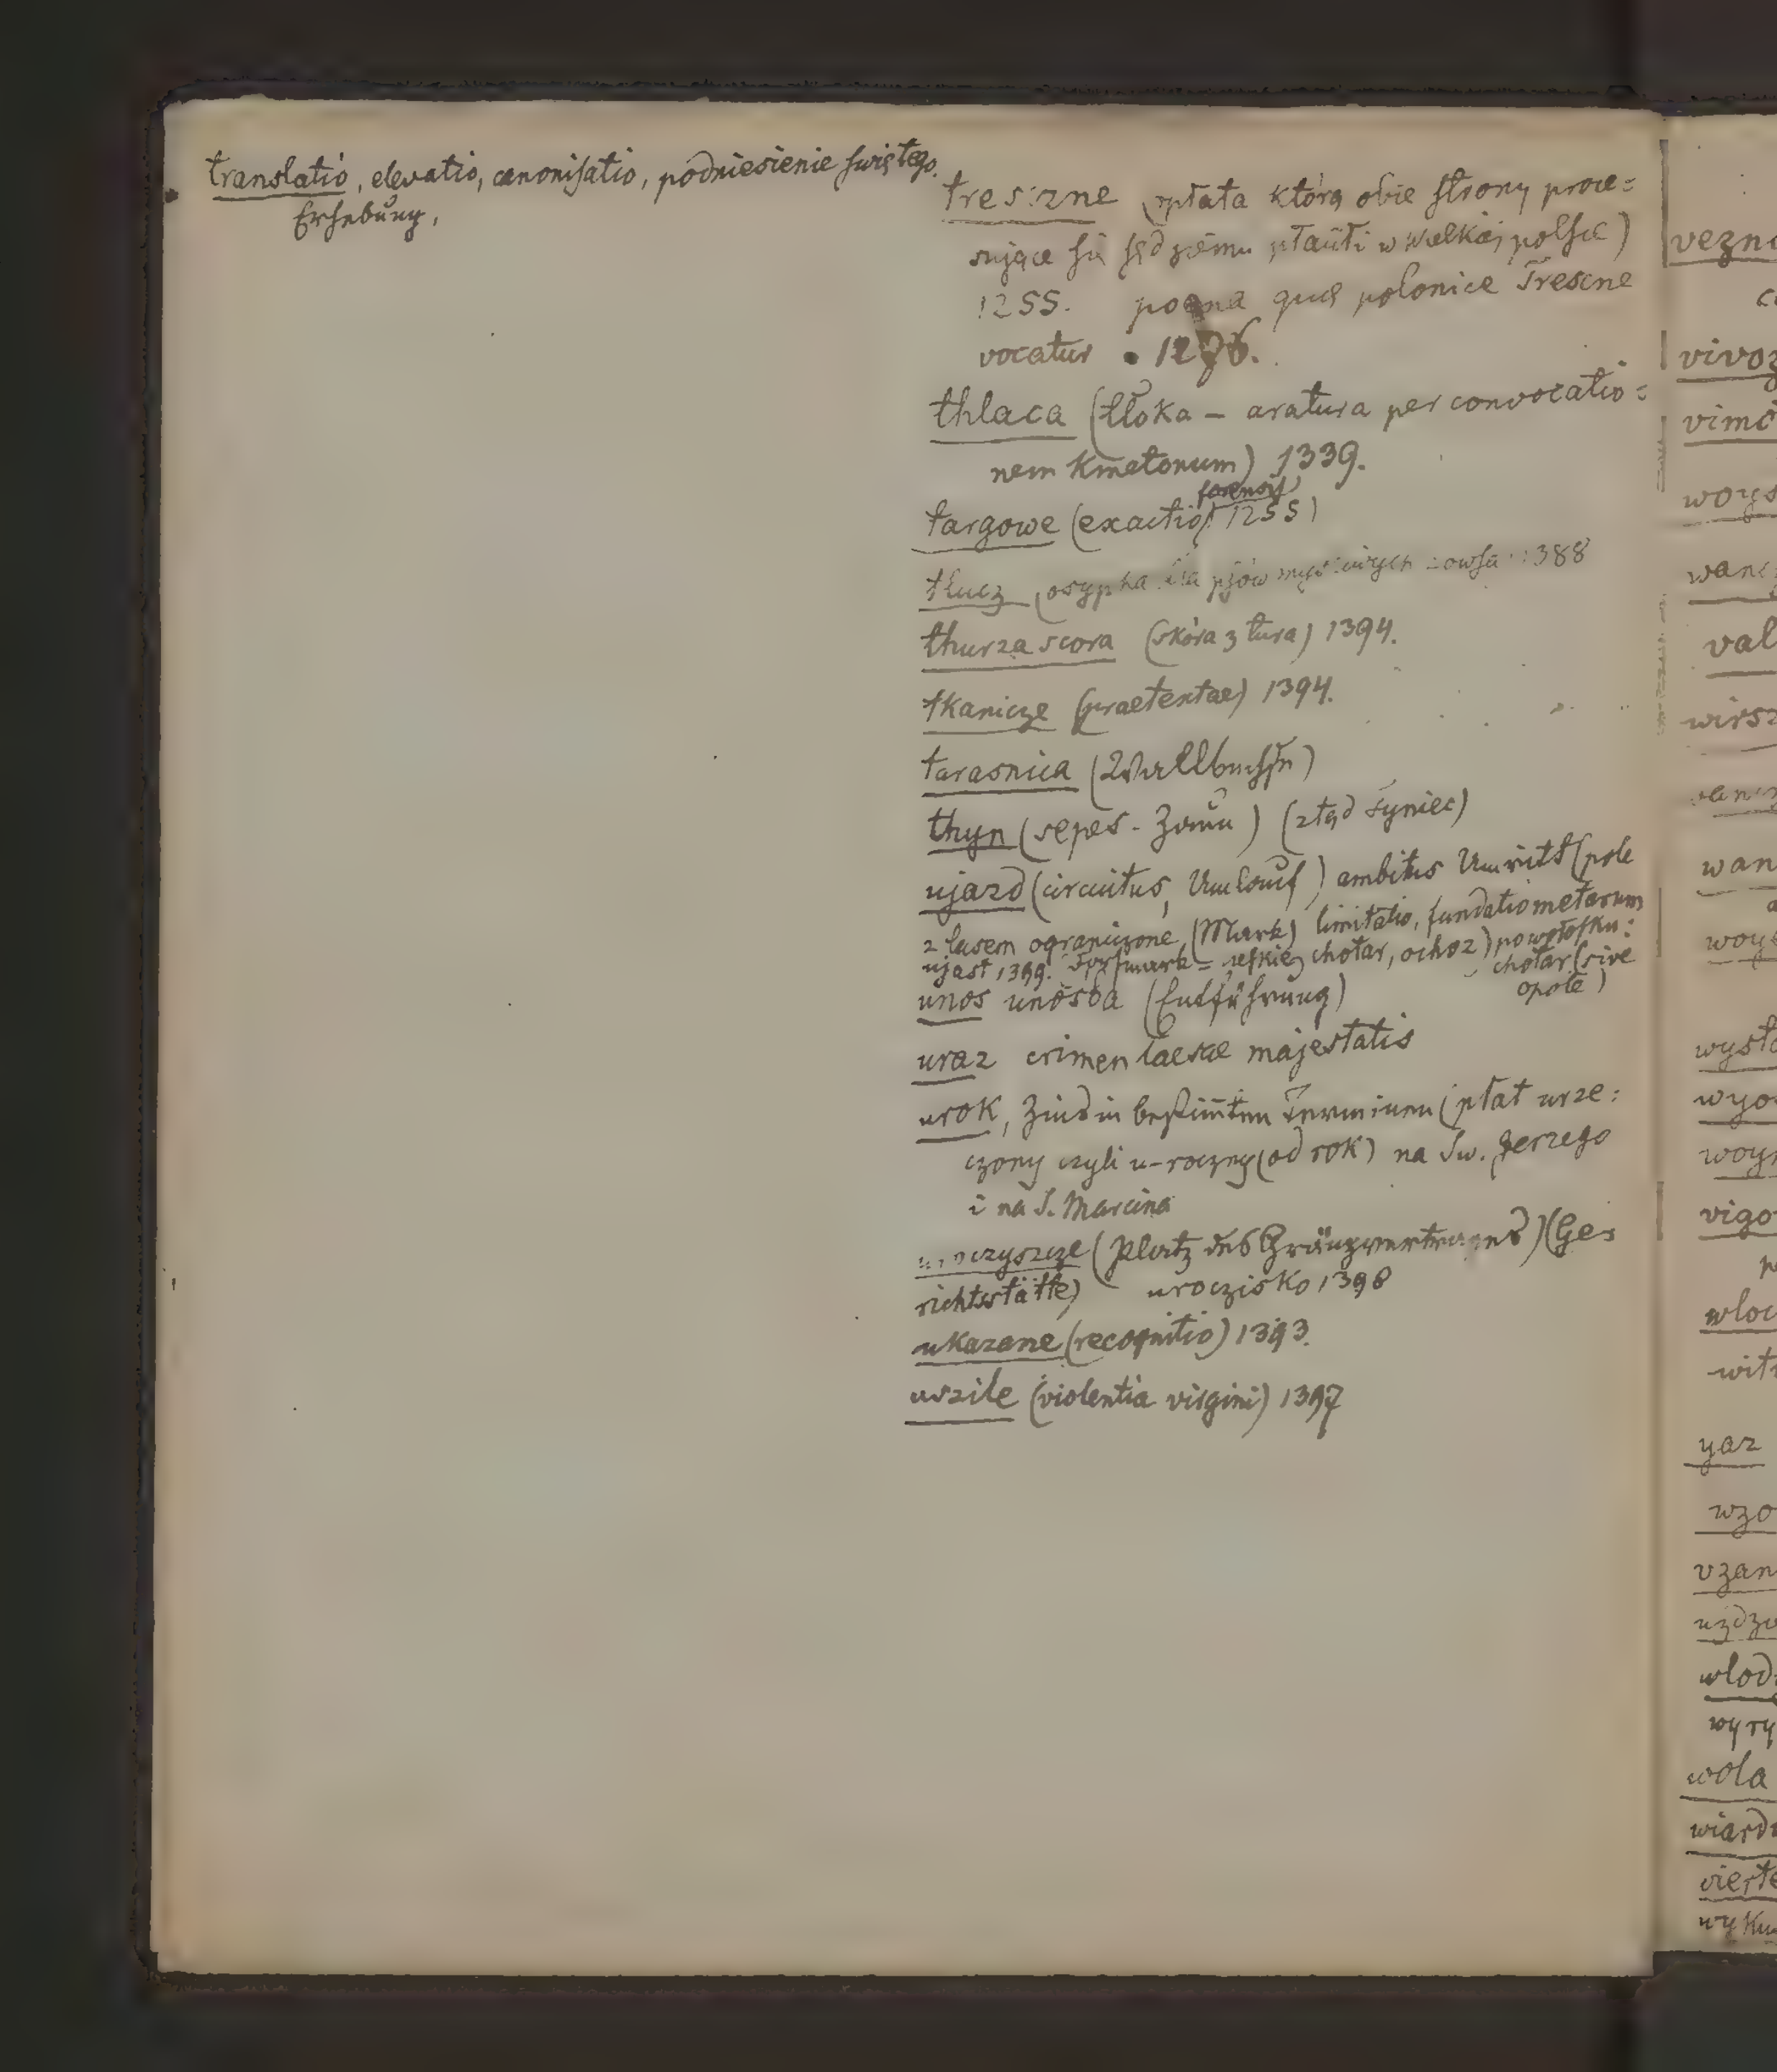 translatio, elevatio, canonisatio, podniesienie świętego.
Erhebung,
tresczne (opłata którą obie strony proce=
sujące się sędziemu płaciły w Wielkiej polsce)
1255. poena que polonice Trescne
vocatur 1276.
thlaca (tłoka – aratura per convocatio=
nem Kmetonum) 1339.
forensis
targowe (exactio) 1255)
tłucz (osypka dla psów myśliwych z owsa 1388
thurza scora (skóra z tura) 1394.
tkanicze (praetextae) 1394.
tarasnica (Wallbuchse)
thyn (sepes - Zaun) (ztąd Tyniec)
ujazd (circuitus, Umlauf) ambitus Umritt (pole
z lasem ograniczone, (Mark) limitatio, fundatio metarum
ujast 1399. Dorfmark = chotar, ochoz) po włosku:
chotar (sive
opole)
unos unosba (Entführung)
uraz crimen laesae majestatis
urok, Zins in bestimten Terminen (płat urze:
czony czyli u-roczny (od rok) na Św. Jerzego
i na S. Marcina
uroczyszcze (Platz des Gränzvertrages) (Ge=
richtsstätte) uroczisko 1398
ukazane (recognitio) 1393.
uszile (violentia virgini) 1397
vezn
vivoz
vimo
woys
wan
val
wirsz
wan
woy
wyst
wyo
woy
vigo
wlo
wit
yaz
wzo
vzan
uzdz
wlod
wyry
wola
wiard
vierte
wyku